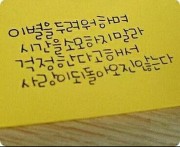 이별을 두려워하며
시간을 소모하지말라
걱정한다고 해서
사랑이 되돌아오진 않는다